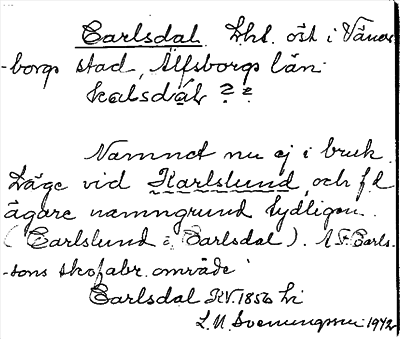 Carlsdal. Lht. öst i Väners-
-borgs stad, Älfsborgs län.
kalsdal ??
Namnet nu ej i bruk.
Läge vid Karlslund, och f. d.
ägare namngrund tydligen.
(Carlslund o. Carlsdal). A. F. Carls-
-sons skofabr. område
Carlsdal KV. 1856
1942